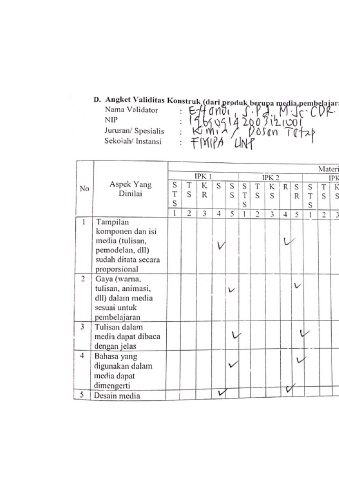 D. Angket Validitas Konstruk (dari produk berupa media pembelajar
Nama Validator :
NIP :
Jurusan/ Spesialis : Kimia / Dosen Tetap
Sekolah/ Instansi : FMIPA UNP
No Aspek Yang Dinilai Materi
IPK 1 IPK 2 IPK
STS TS KR S SS STS TS KS R SR STS TS K
1 2 3 4 5 1 2 3 4 5 1 2
1 Tampilan
komponen dan isi
media (tulisan,
pemodelan, dll)
sudah ditata secara
proporsional
2 Gaya (warna,
tulisan, animasi,
dll) dalam media
sesuai untuk
pembelajaran
3 Tulisan dalam
media dapat dibaca
dengan jelas
4 Bahasa yang
digunakan dalam
media dapat
dimengerti
5 Desain media